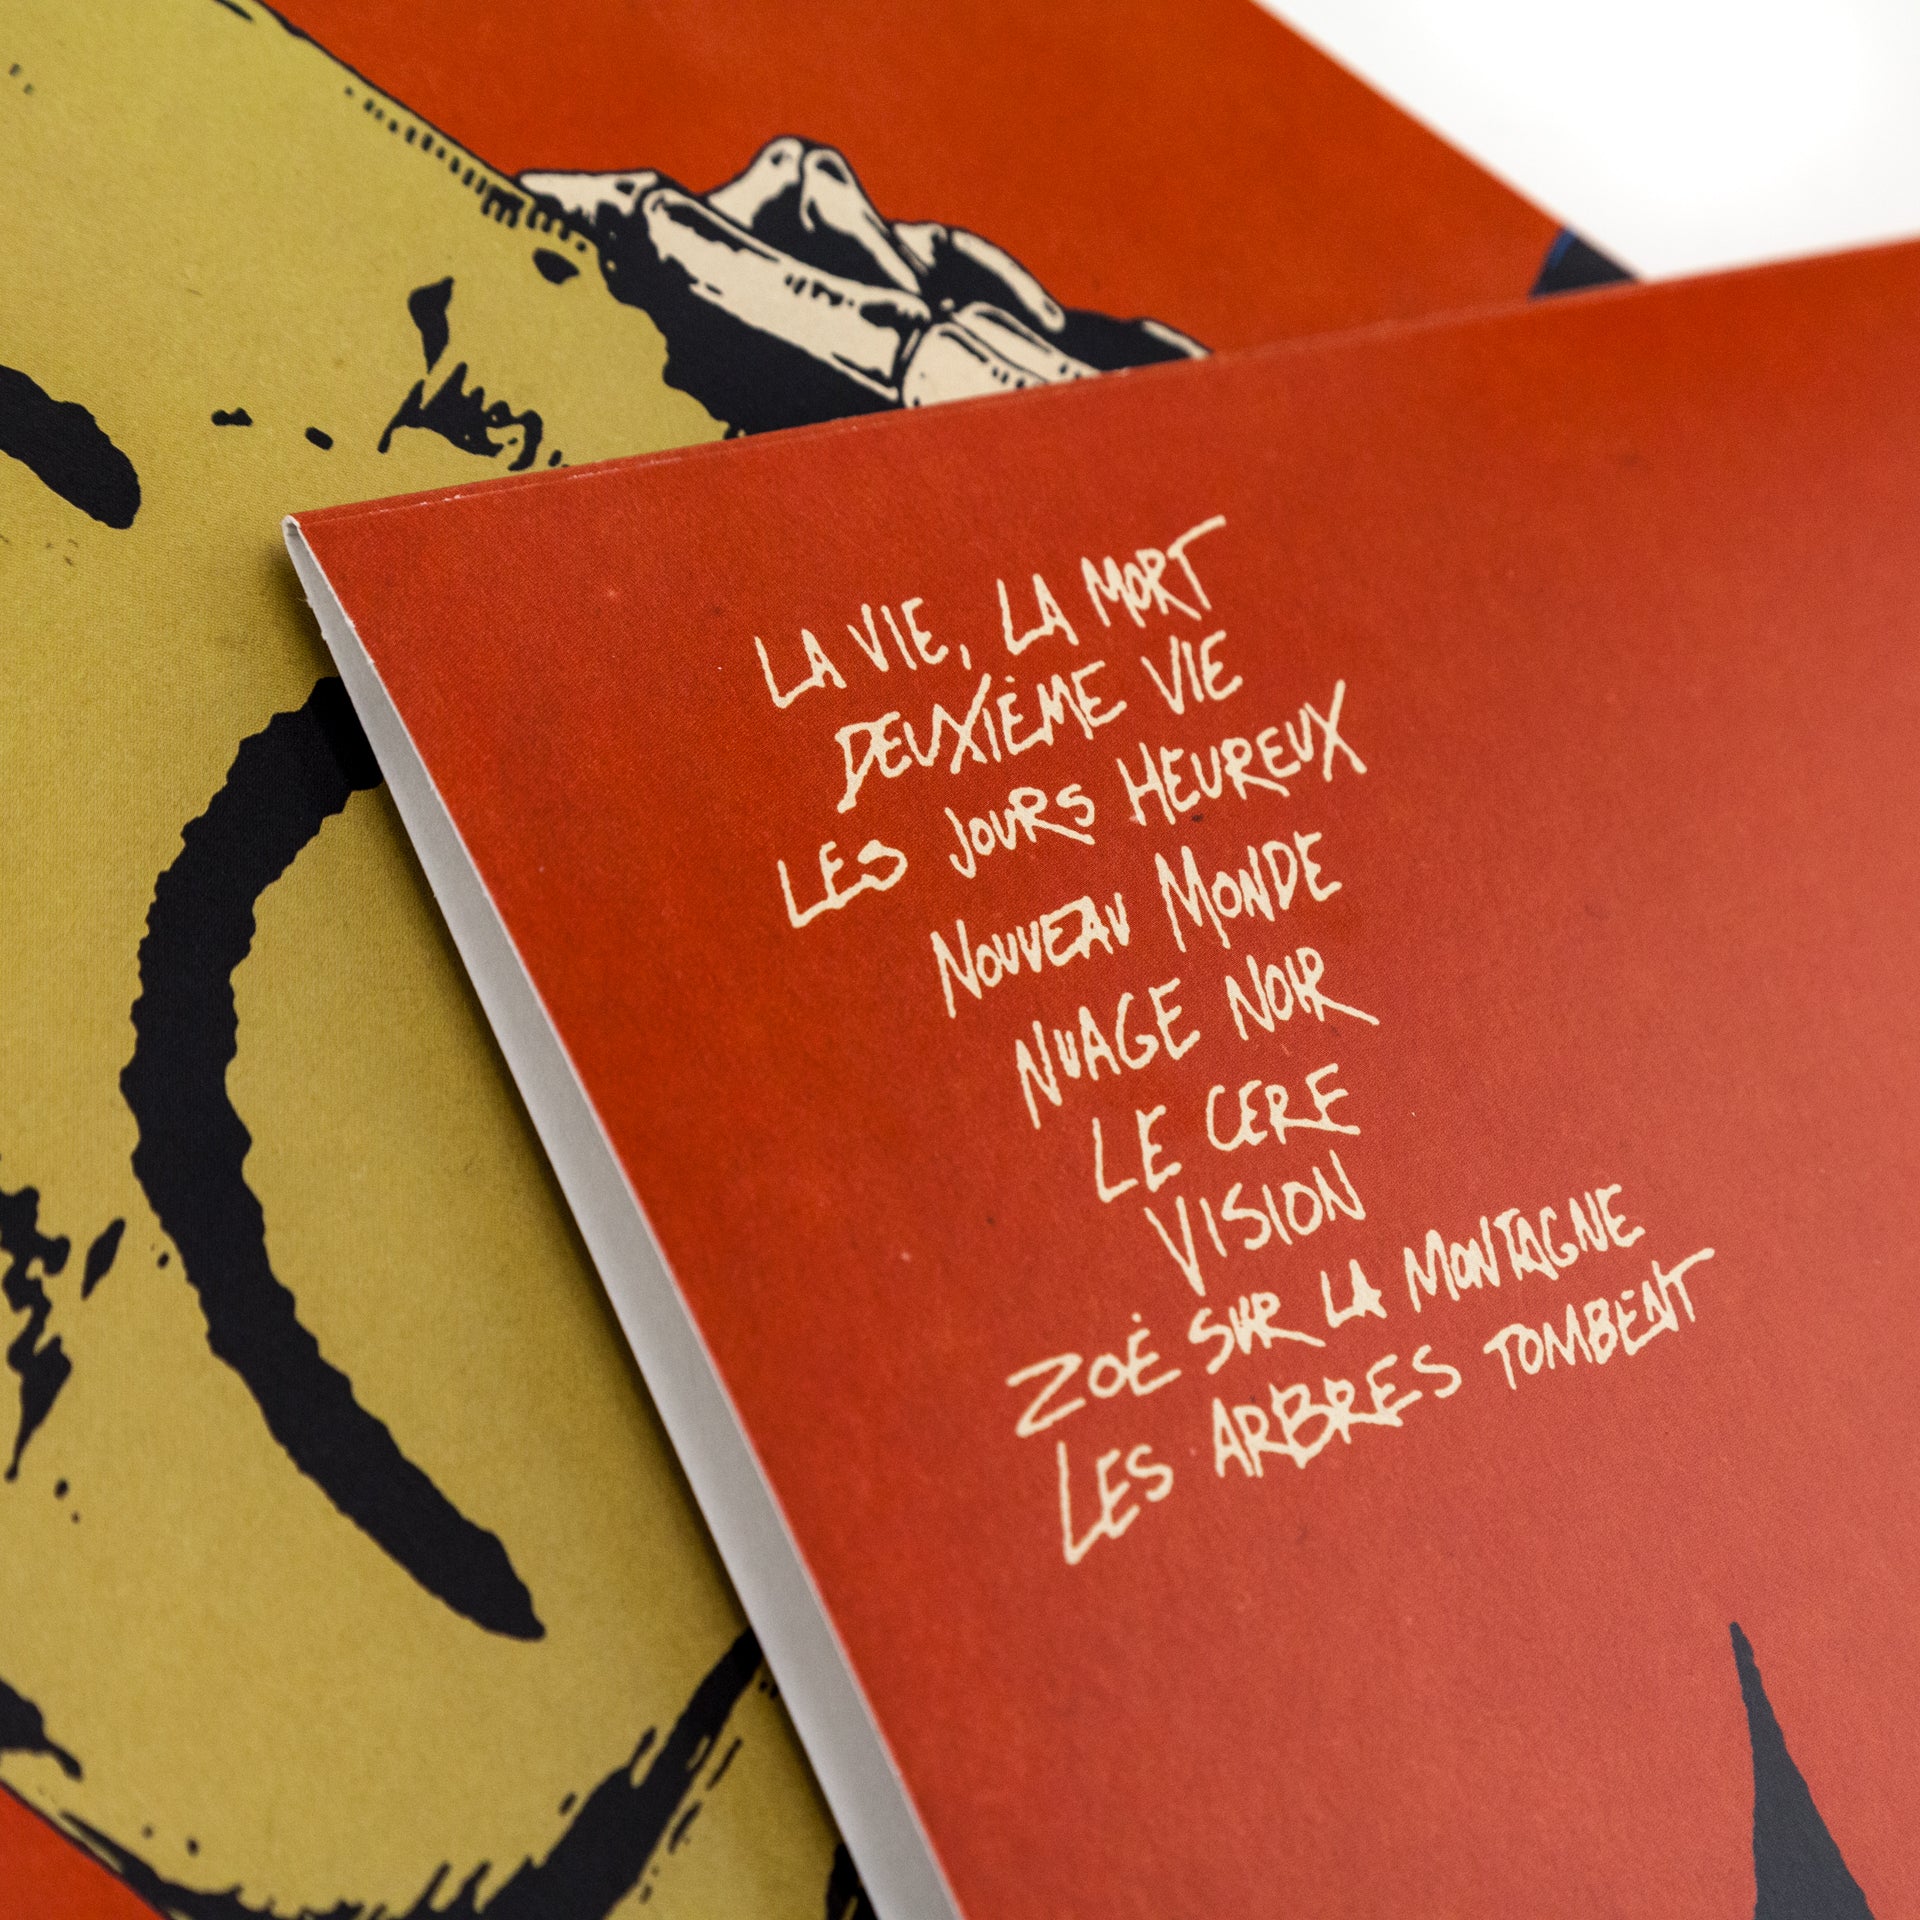 LA VIE, LA MORT
DEUXIÈME VIE
LES JOURS HEUREUX
NOUVEAU MONDE
NUAGE NOIR
LE CERE
VISION
ZOÉ SUR LA MONTAGNE
LES ARBRES TOMBENT